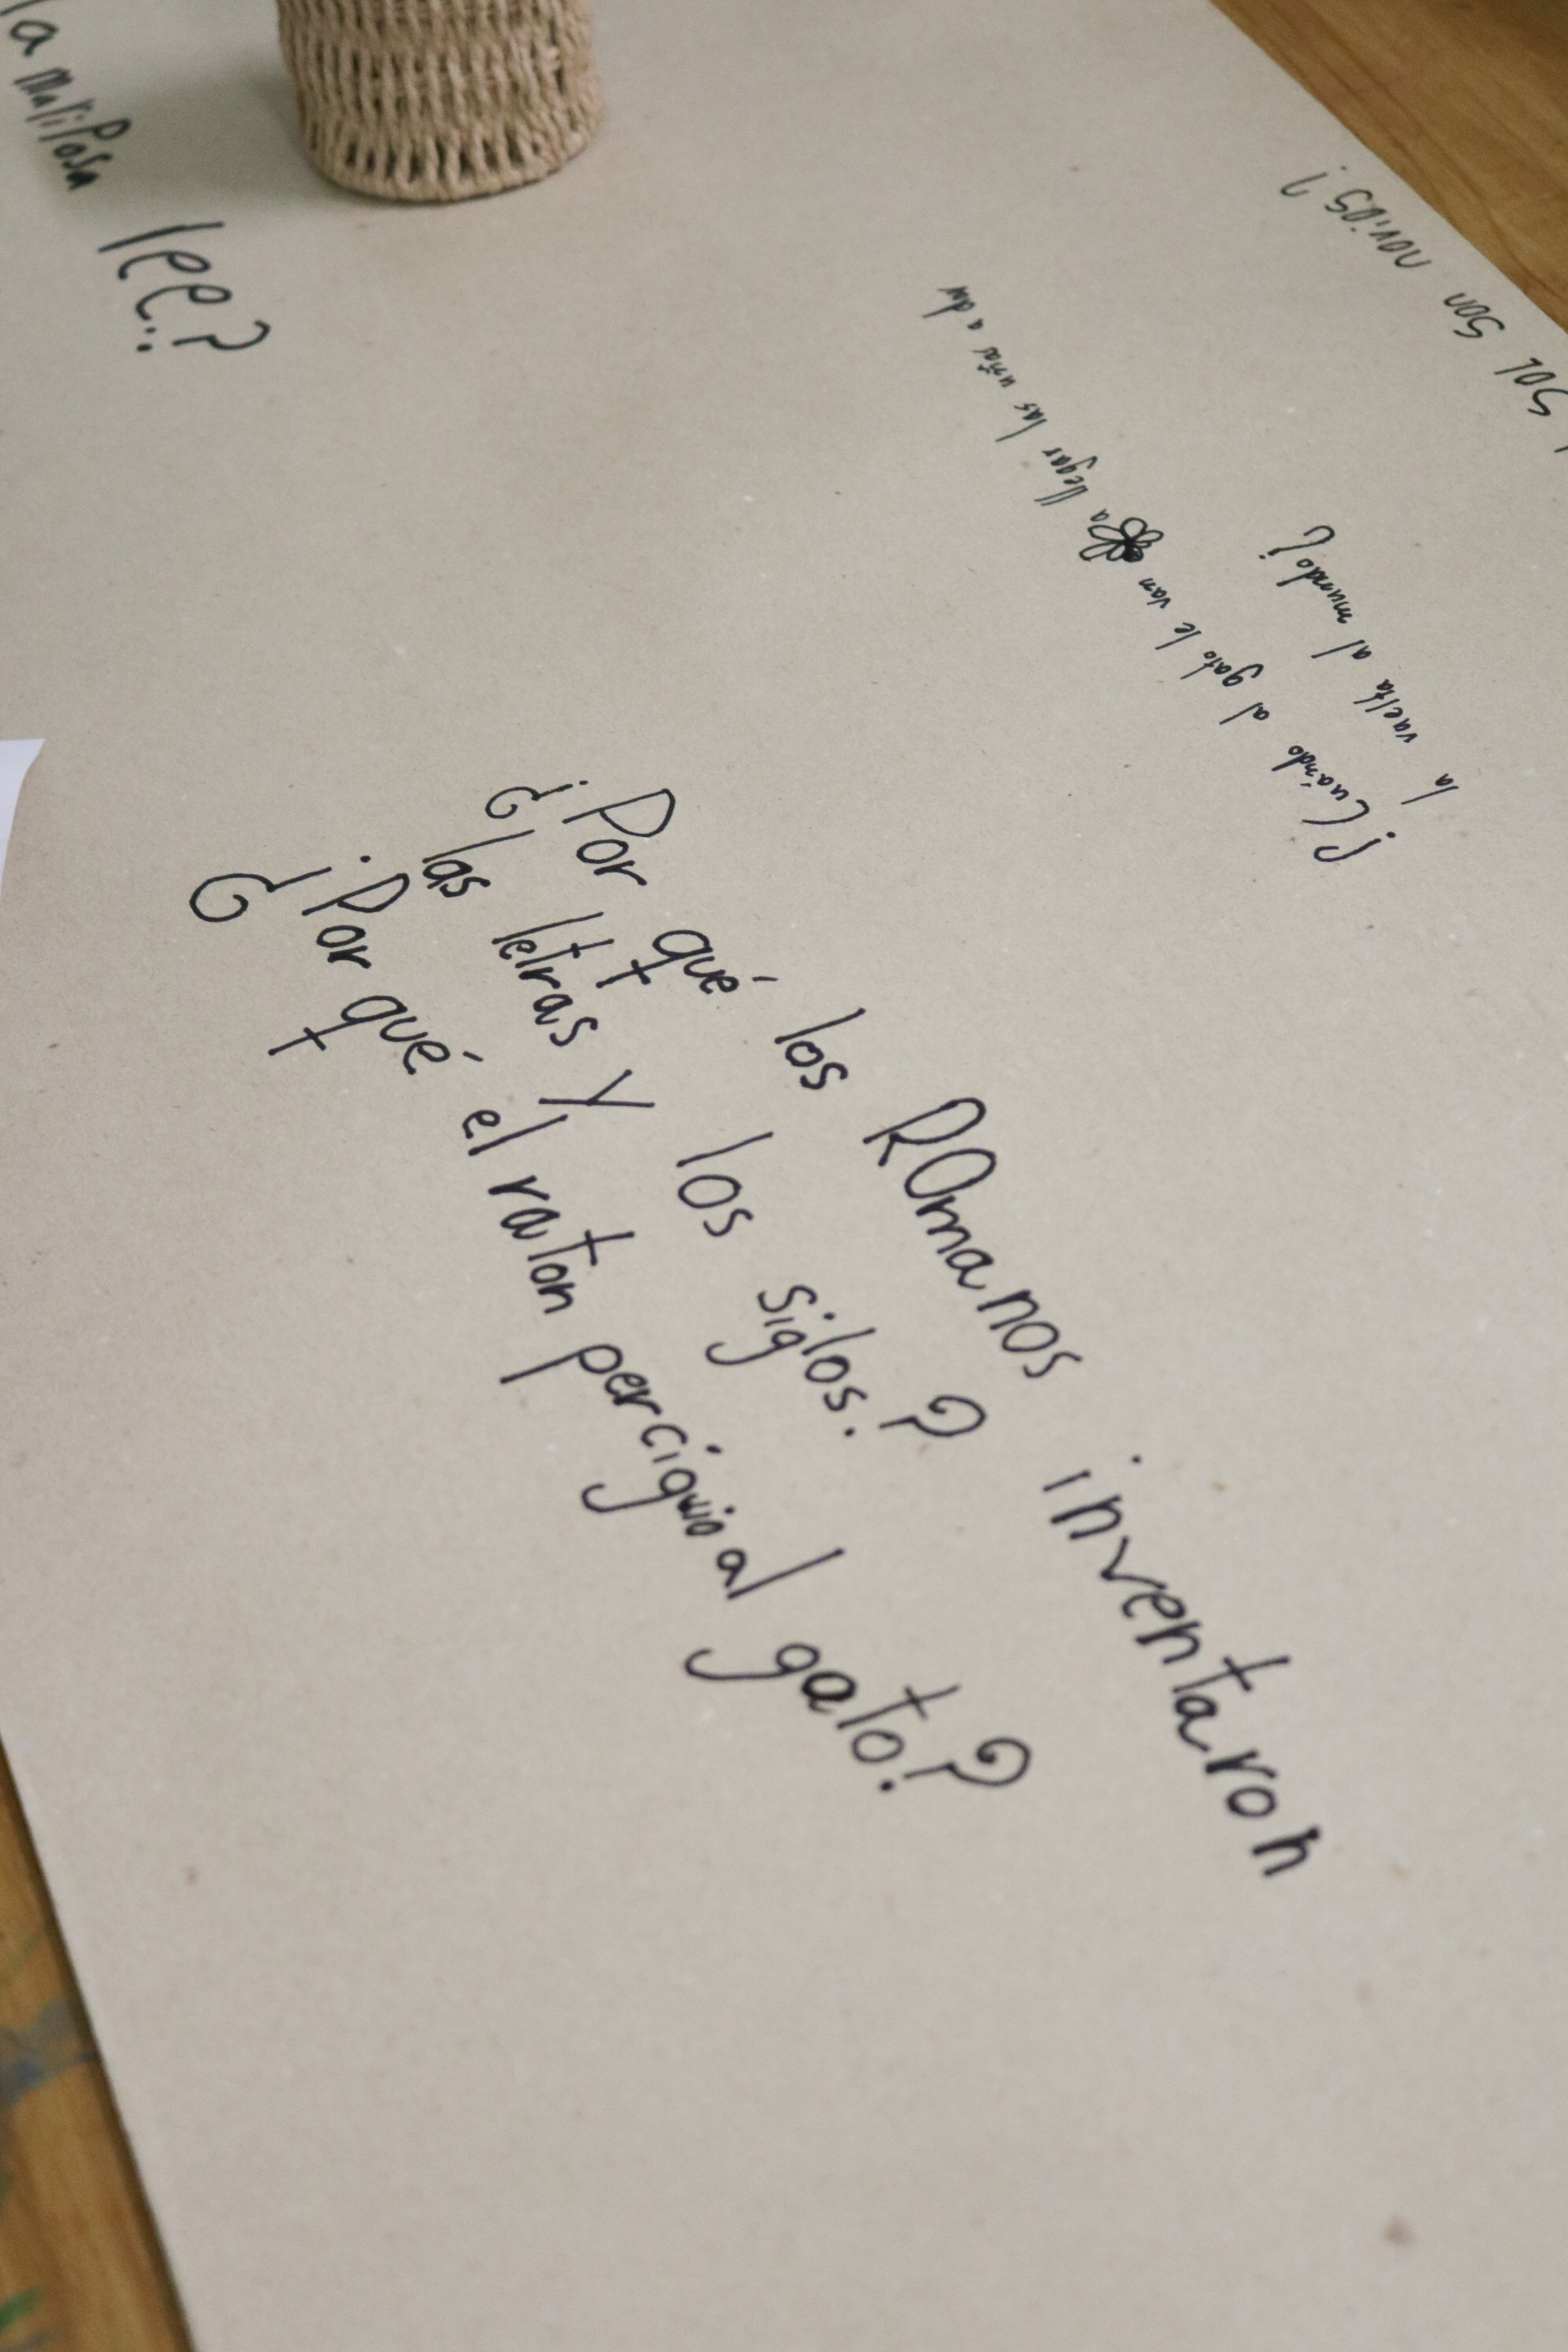 la mariposa
lee?
SOL son novios?
¿Cuándo al gato le van a llegar las uñas a dar
la vuelta al mundo?
¿Por qué los ROmanos inventaron
las letras y los siglos.?
¿Por qué el ratón perciguio al gato?